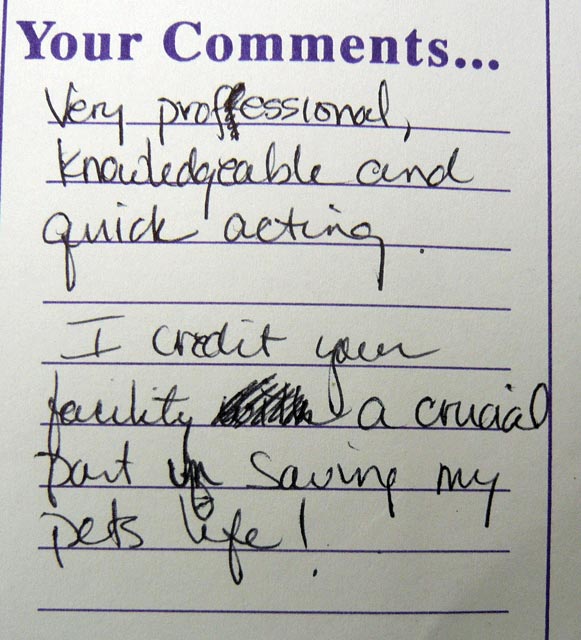 Your Comments...
Very professional,
knowledgeable and
quick acting.
I credit your
facility a crucial
part in saving my
pets life!